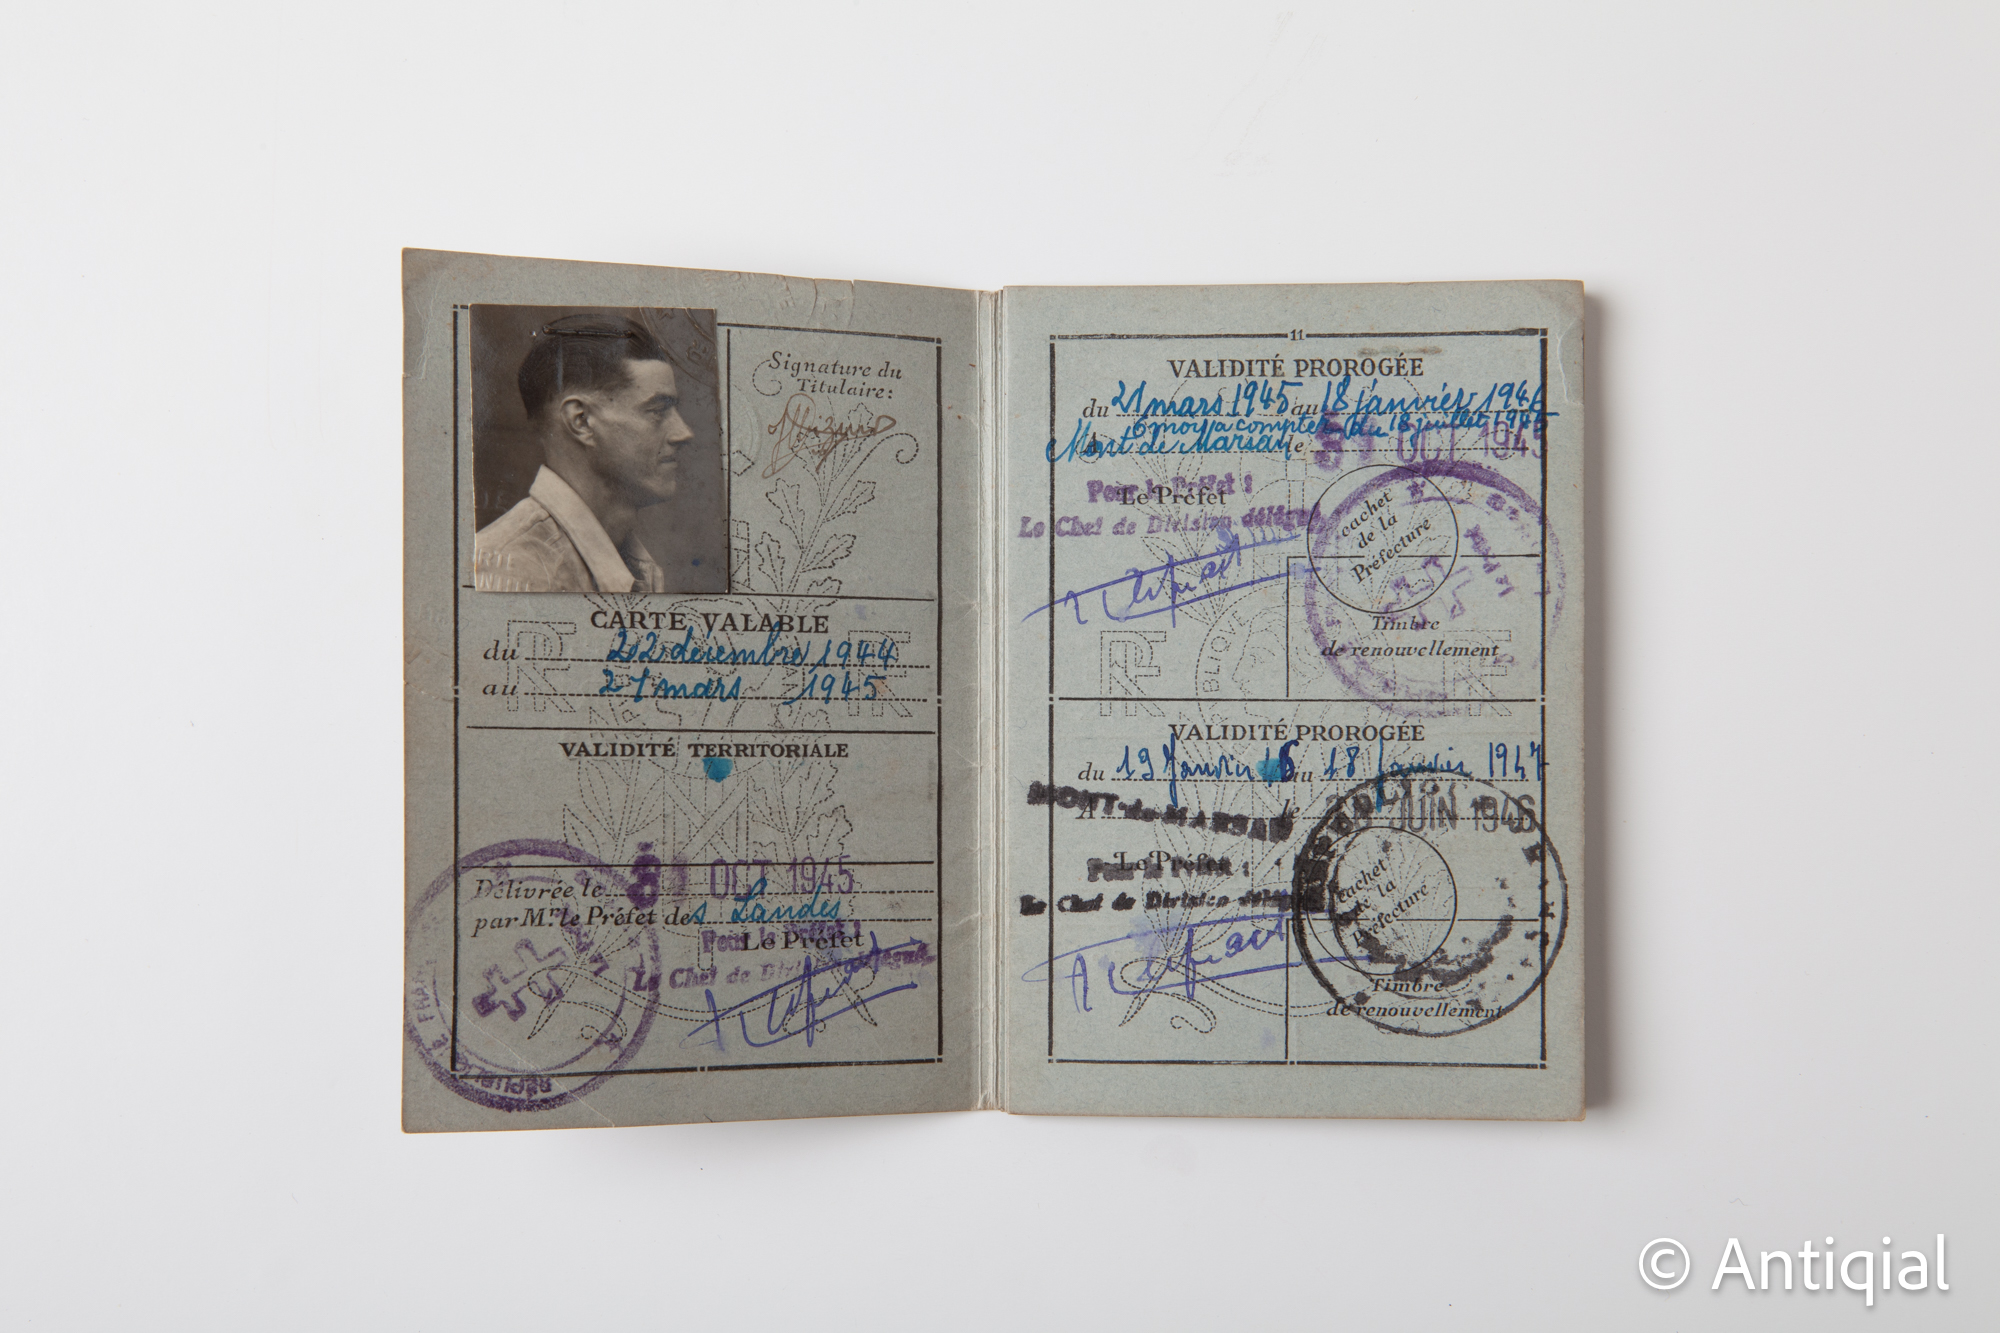 Signature du
Titulaire:
CARTE VALABLE
du 22 décembre 1944
au 21 mars 1945
VALIDITÉ TERRITORIALE
Délivrée le 31 OCT 1945
par Mr. le Préfet des Landes
Pour le Préfet :
Le Préfet
Le Chef de Division délégué
RÉPUBLIQUE FRANÇAISE
11
VALIDITÉ PROROGÉE
du 21 mars 1945 au 18 janvier 1946
6 mois a compter du 18 juillet 1945
A Mont de Marsan le 31 OCT 1945
Pour le Préfet :
Le Préfet
Le Chef de Division délégué
cachet
de la
Préfecture
Timbre
de renouvellement
VALIDITÉ PROROGÉE
du 19 Janvier 46 au 18 Janvier 1947
MONT-de-MARSAN
A le JUIN 1946
Pour le Préfet :
Le Préfet
Le Chef de Division délégué
cachet
de la
Préfecture
Timbre
de renouvellement
© Antiqial